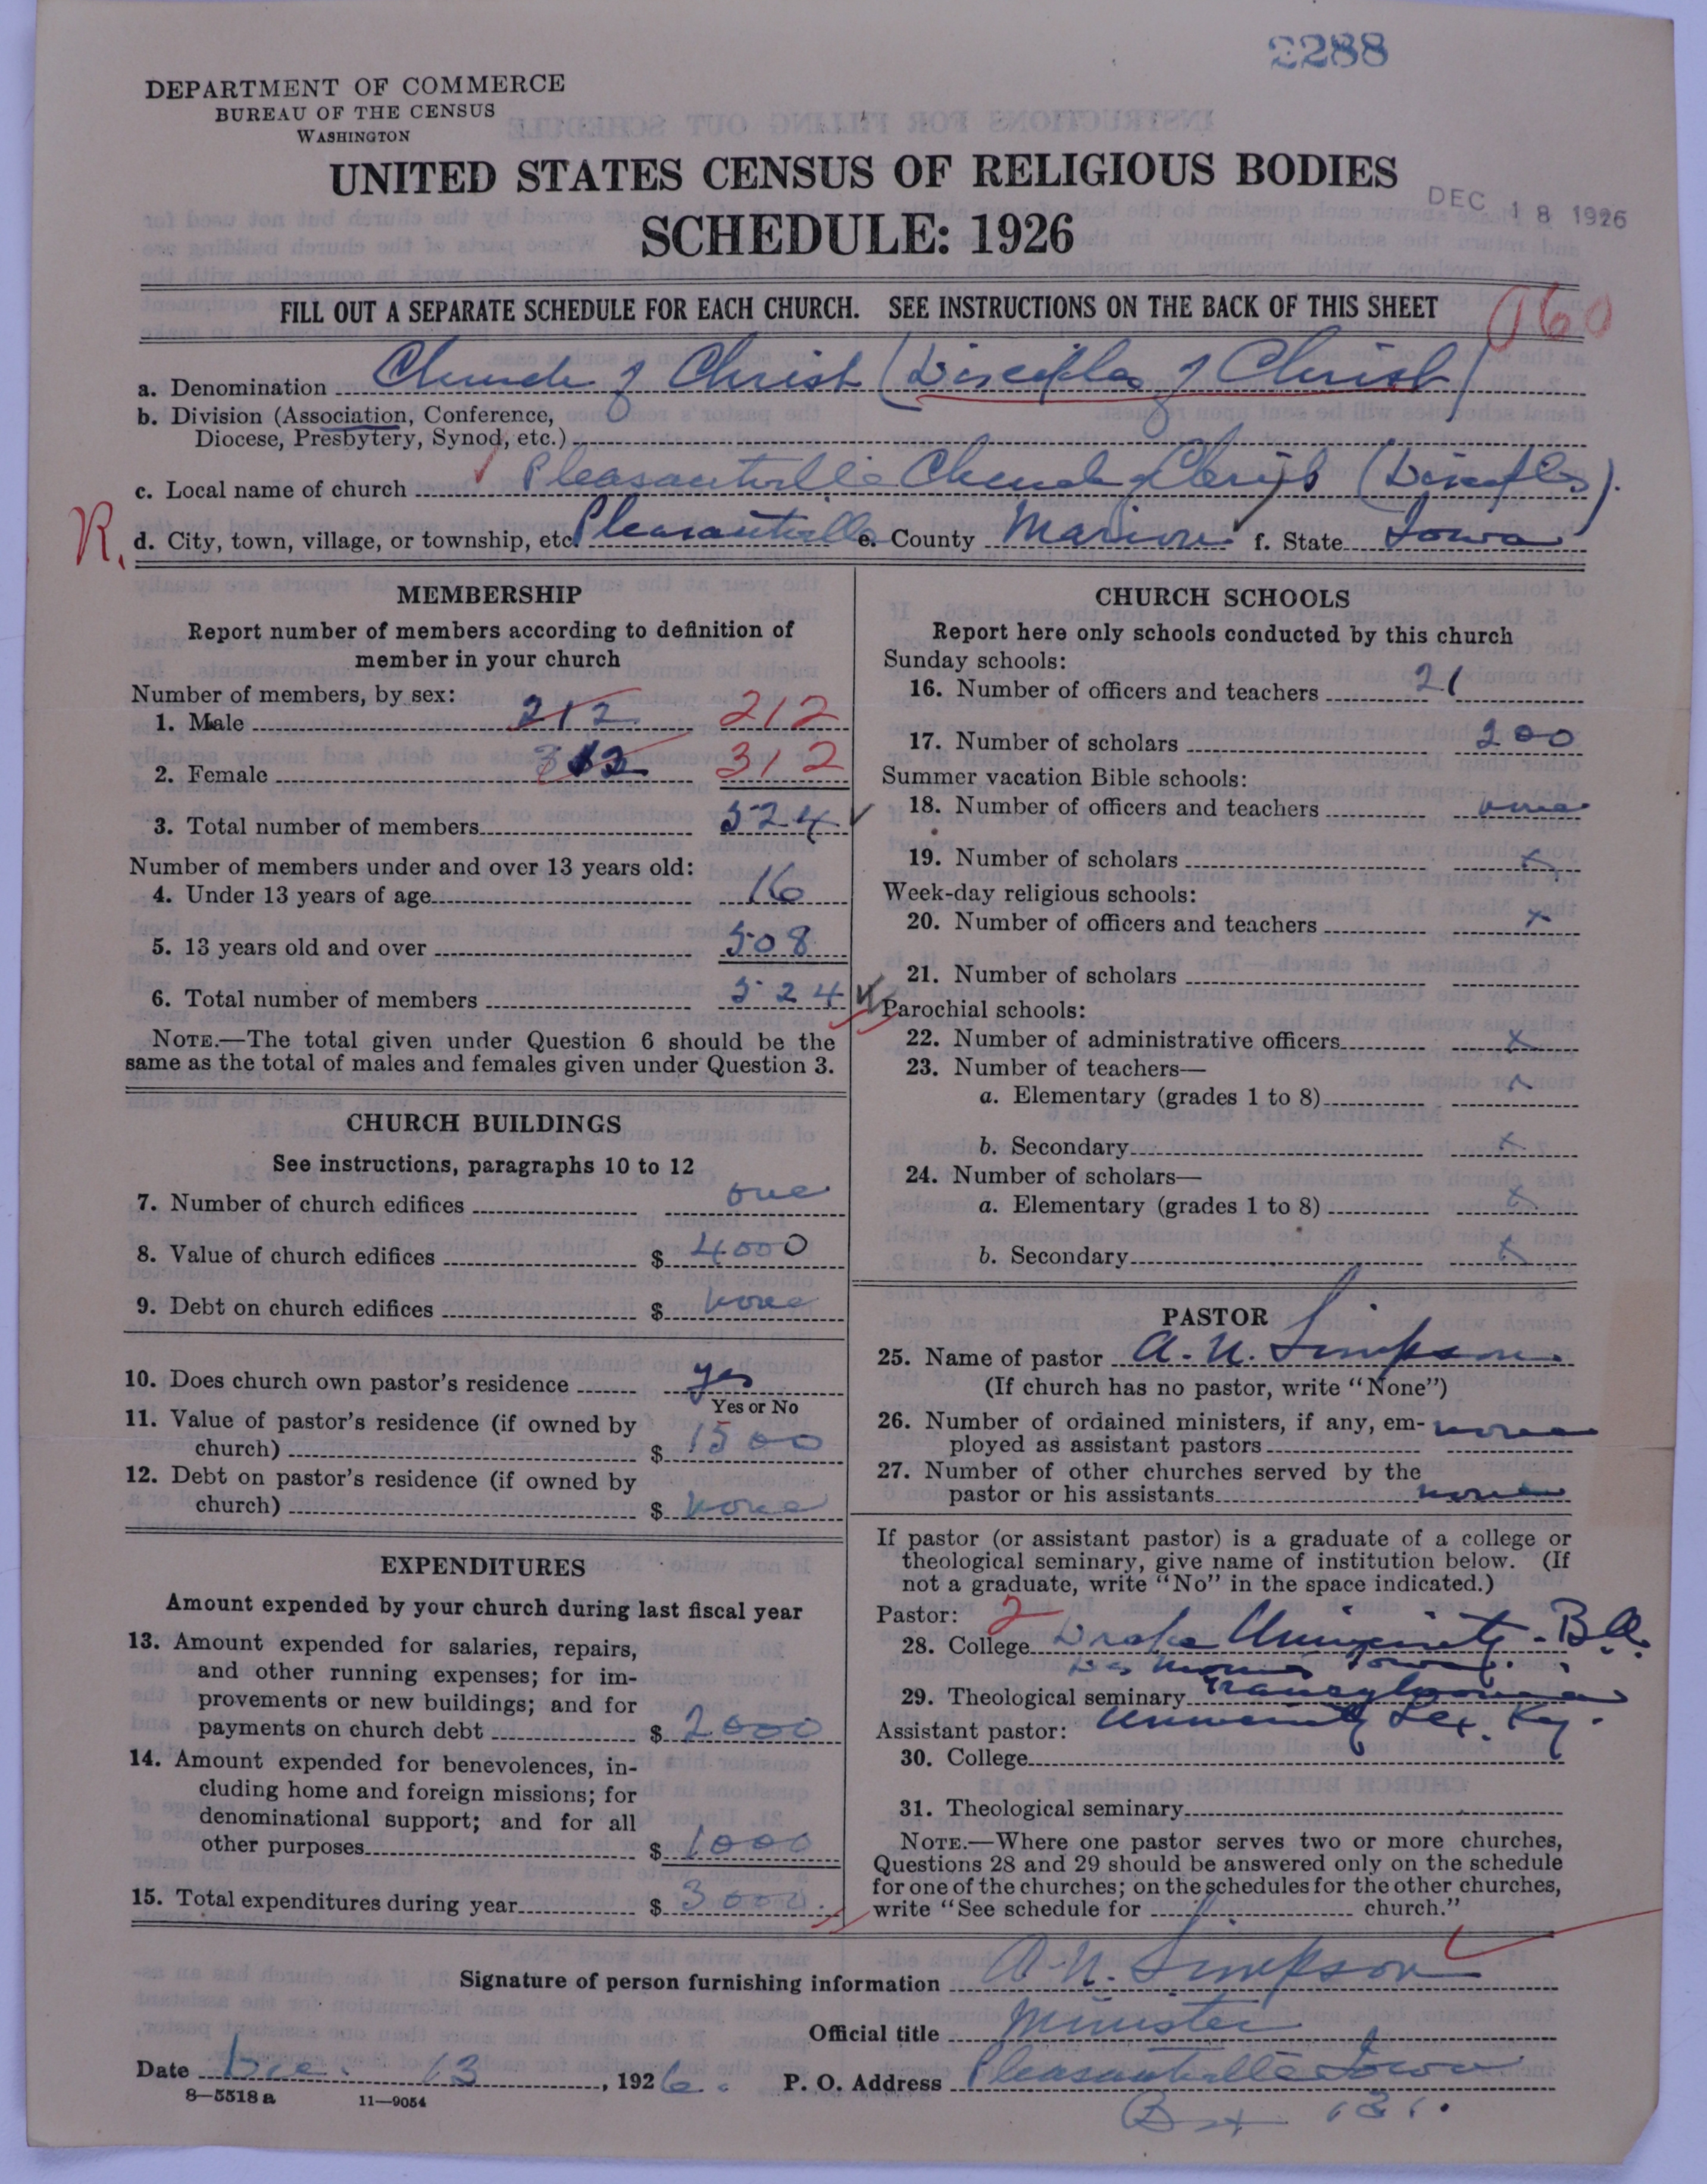 2288
DEPARTMENT OF COMMERCE
BUREAU OF THE CENSUS
WASHINGTON
UNITED STATES CENSUS OF RELIGIOUS BODIES
SCHEDULE: 1926
DEC 18 1926
FILL OUT A SEPARATE SCHEDULE FOR EACH CHURCH. SEE INSTRUCTIONS ON THE BACK OF THIS SHEET
160
a. Denomination Church of Christ (Disciples of Christ)
b. Division (Association, Conference,
Diocese, Presbytery, Synod, etc.)
c. Local name of church Pleasantville Church of Christ (Disciples).
R.
d. City, town, village, or township, etc. Pleasantville e. County Marion f. State Iowa
MEMBERSHIP
Report number of members according to definition of
member in your church
Number of members, by sex:
1. Male 212 212
2. Female 312 312
3. Total number of members 524
Number of members under and over 13 years old:
4. Under 13 years of age 16
5. 13 years old and over 508
6. Total number of members 524
NOTE.—The total given under Question 6 should be the
same as the total of males and females given under Question 3.
CHURCH BUILDINGS
See instructions, paragraphs 10 to 12
7. Number of church edifices one
8. Value of church edifices $ 4000
9. Debt on church edifices $ none
10. Does church own pastor's residence yes
Yes or No
11. Value of pastor's residence (if owned by
church) $ 1500
12. Debt on pastor's residence (if owned by
church) $ none
EXPENDITURES
Amount expended by your church during last fiscal year
13. Amount expended for salaries, repairs,
and other running expenses; for im-
provements or new buildings; and for
payments on church debt $ 2000
14. Amount expended for benevolences, in-
cluding home and foreign missions; for
denominational support; and for all
other purposes $ 1000
15. Total expenditures during year $ 3000.
CHURCH SCHOOLS
Report here only schools conducted by this church
Sunday schools:
16. Number of officers and teachers 21
17. Number of scholars 200
Summer vacation Bible schools:
18. Number of officers and teachers none
19. Number of scholars x
Week-day religious schools:
20. Number of officers and teachers x
21. Number of scholars
Parochial schools:
22. Number of administrative officers x
23. Number of teachers—
a. Elementary (grades 1 to 8) x
b. Secondary x
24. Number of scholars—
a. Elementary (grades 1 to 8) x
b. Secondary x
PASTOR
25. Name of pastor A. N. Simpson.
(If church has no pastor, write "None")
26. Number of ordained ministers, if any, em-
ployed as assistant pastors none
27. Number of other churches served by the
pastor or his assistants none
If pastor (or assistant pastor) is a graduate of a college or
theological seminary, give name of institution below. (If
not a graduate, write "No" in the space indicated.)
Pastor: 2
28. College Drake University - B.A.
Des Moines Iowa.
29. Theological seminary Transylvania
University Lex. Ky.
Assistant pastor:
30. College
31. Theological seminary
NOTE.—Where one pastor serves two or more churches,
Questions 28 and 29 should be answered only on the schedule
for one of the churches; on the schedules for the other churches,
write "See schedule for church."
Signature of person furnishing information A. N. Simpson
Official title Minister
Date Dec. 13, 1926. P. O. Address Pleasantville Iowa
8—5518a 11—9054
Box 131.